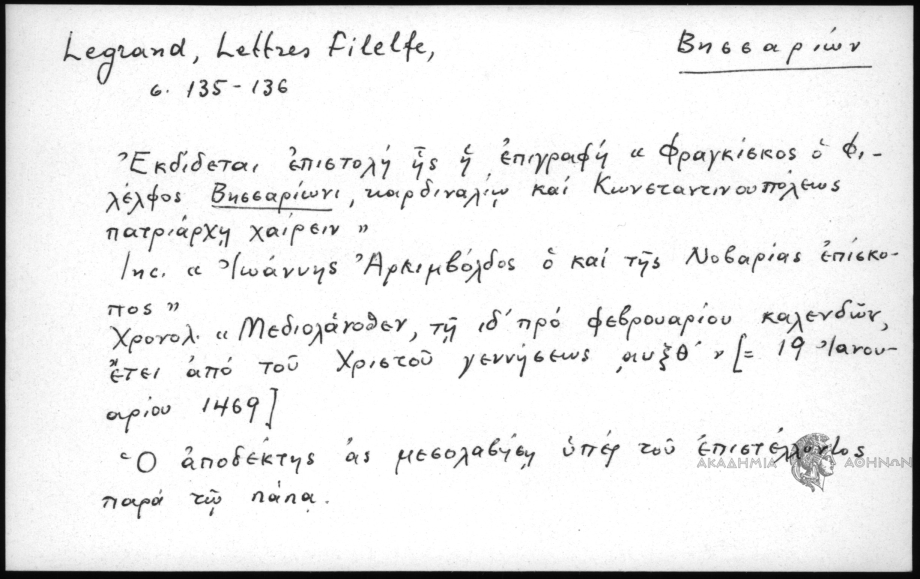 Legrand, Lettres Filelfe,
Βησσαρίων
σ. 135-136
Ἐκδίδεται ἐπιστολή ἧς ἡ ἐπιγραφή « Φραγκίσκος ὁ Φι-
λέλφος Βησσαρίωνι, καρδιναλίῳ καί Κωνσταντινουπόλεως
πατριάρχῃ χαίρειν »
Inc. « Ἰωάννης Ἀρκιμβόλδος ὁ καί τῆς Νοβαρίας ἐπίσκο-
πος »
Χρονολ. « Μεδιολάνοθεν, τῇ ιδ΄ πρό φεβρουαρίου καλενδῶν,
ἔτει ἀπό τοῦ Χριστοῦ γεννήσεως ͵αυξθ΄ » [= 19 Ἰανου-
αρίου 1469]
Ὁ ἀποδέκτης ἄς μεσολαβήσῃ ὑπέρ τοῦ ἐπιστέλλοντος
ΑΚΑΔΗΜΙΑ ΑΘΗΝΩΝ
παρά τῷ πάπᾳ.